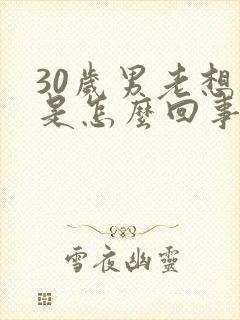 30歲男老想
是怎麼回事
雪夜幽靈